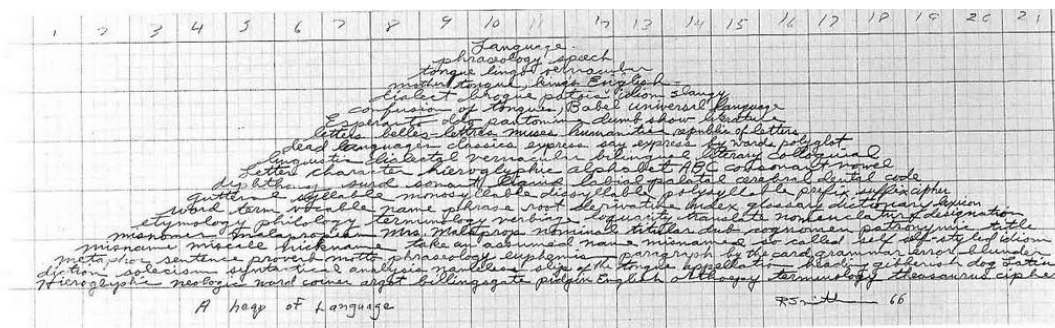 1 2 3 4 5 6 7 8 9 10 11 12 13 14 15 16 17 18 19 20 21
Language.
phraseology speech
tongue lingo vernacular
mother tongue, kings English
dialect brogue patois idiom slangy
confusion of tongues, Babel universal language
Esperanto dog pantomime dumb show literature
letters belles-lettres muses humanities republic of letters
dead languages classics express say express by words polyglot
linguistic dialectal vernacular bilingual literary colloquial
letter character hieroglyphic alphabet ABC consonant vowel
diphthong surd sonant liquid labial palatal cerebral dental code
guttural syllable monosyllable dissyllable polysyllable prefix suffix cipher
word term vocable name phrase root derivative index glossary dictionary lexicon
etymology philology terminology verbiage loquacity translate nomenclature designation
misnomer Malapropism Mrs. Malaprop nominal titular dub cognomen patronymic title
misname miscall nickname take an assumed name misnamed so called self styled idiom
metaphor sentence proverb motto phraseology euphemism paragraph by the card grammar error blunder
diction solecism syntactical analysis nameless slip of the tongue heading gibberish dog Latin
Hieroglyphic neologic word coiner argot billingsgate pidgin English orthoepy terminology thesaurus cipher
A heap of Language
RSmithson 66